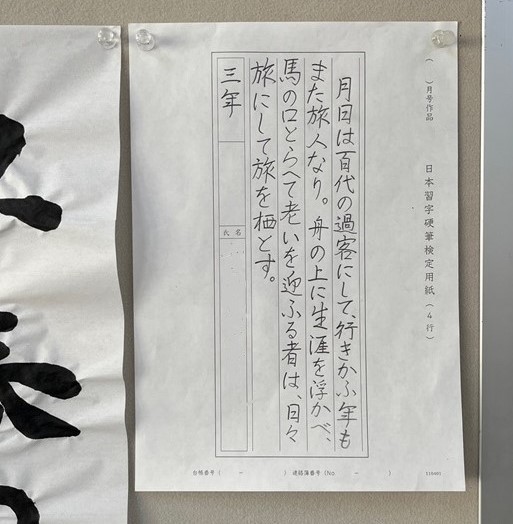 ( )月号作品
日本習字硬筆検定用紙(4行)
月日は百代の過客にして、行きかふ年も
また旅人なり。舟の上に生涯を浮かべ、
馬の口とらへて老いを迎ふる者は、日々
旅にして旅を栖とす。
三年
氏名
台帳番号( - ) 連絡簿番号(No - )